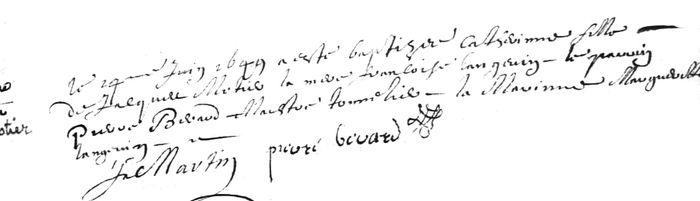 otier
le 14me Juin 1649 a esté baptizee Catherinne fille
de Jacques Motier la mere francoise langevin le parain
Pierre Berard Maistre tonnelier la Marinne Marguerite
langevin
Martin pierre berard